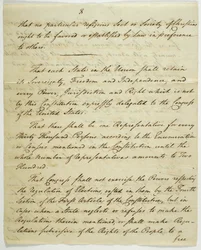 8
that no particular religious Sect or Society of Christians
ought to be favored or established by Law in preference
to others
That each State in the Union shall retain
its Sovereignty, Freedom and Independence, and
every Power, Jurisdiction and Right which is not
by this Constitution expressly delegated to the Congress
of the United States
That there shall be one Representative for every
Thirty Thousand Persons according to the Enumeration
or Census mentioned in the Constitution until the
whole Number of Representatives amounts to Two
Hundred
That Congress shall not exercise the Powers respecting
the regulation of Elections vested in them by the Fourth
Section of the First Article of the Constitution, but in
Cases when a State neglects or refuses to make the
Regulations therein mentioned, or shall make Regu
lations subversive of the Rights of the People to a
free